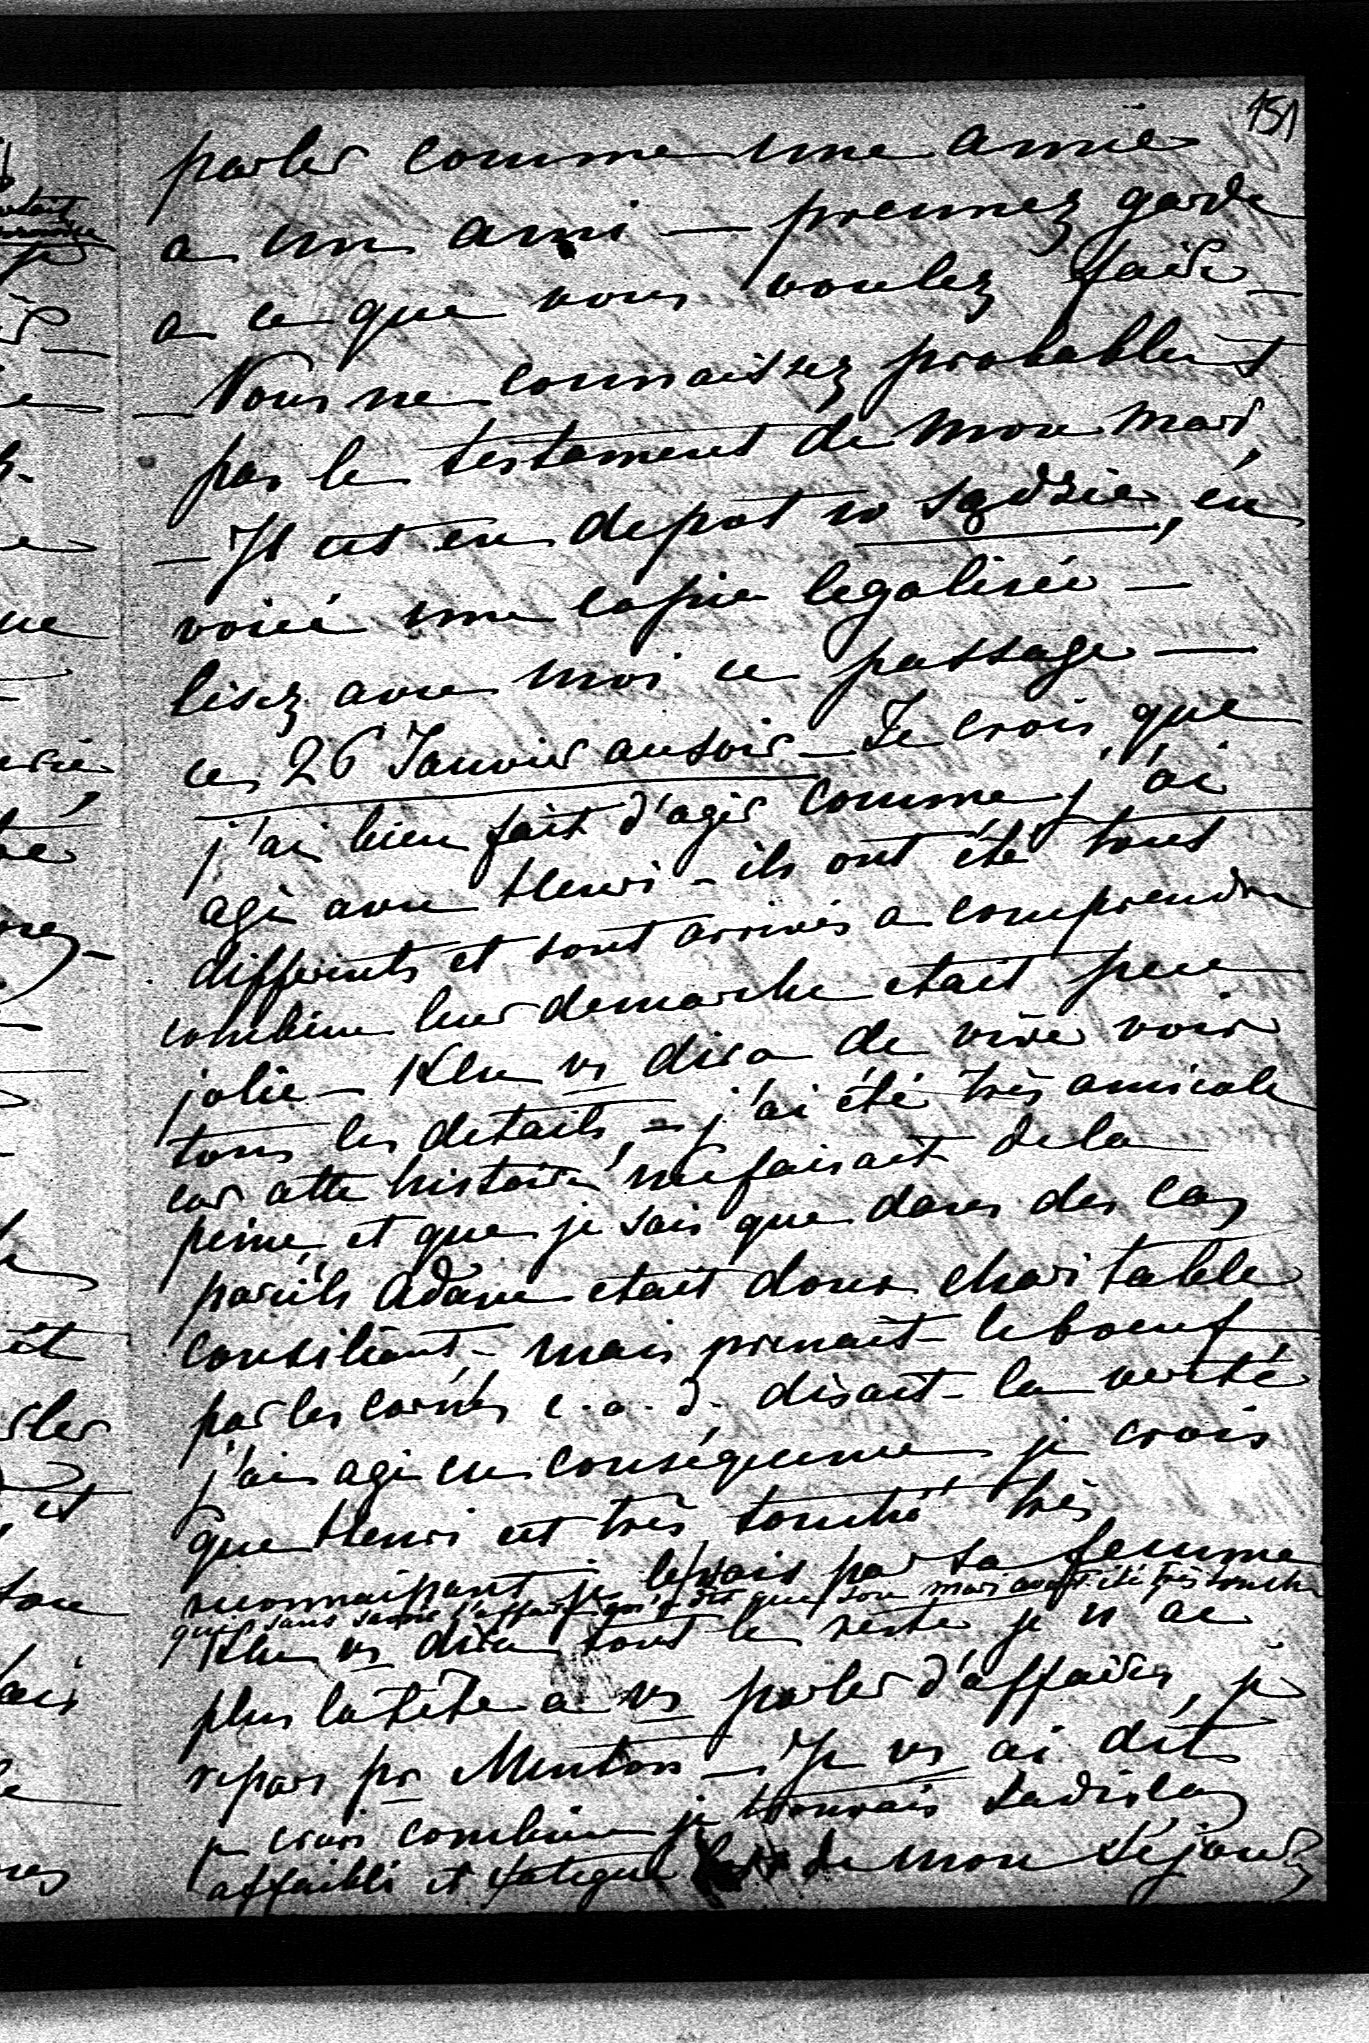 151
parler comme une amie
a un ami — prennez garde
a ce que vous voulez faire —
— Vous ne connaissez probablemt
pas le testament de mon mari,
— Il est en depot w sądzie, en
voici une copie legalisée —
lisez avec moi ce passage —
ce 26 Janvier au soir — Je crois que
j'ai bien fait d'agir comme j'ai
agi avec Henri — ils ont été tous
differents et sont arrivés a comprendre
combien leur demarche etait peu
jolie — vs dira de vive voix
tous les details, — j'ai été très amicale
car cette histoire me faisait de la
peine, et que je sais que dans des cas
pareils Adam etait doux charitable
consiliant — mais prenait le boeuf
par les cornes c.a.d. disait la verité
j'ai agi en conséquence je crois
que Henri est très touché très
reconnaissant je le sais par sa femme
qui sans savoir l'affaire m'a dit que son mari avait été très touché
vs dira tout le reste je n'ai
plus la tête a vs parler d'affaires, je
repars pr Menton — Je vs ai dit
je crois combien je trouvais Ladislas
affaibli et fatigué de mon séjour